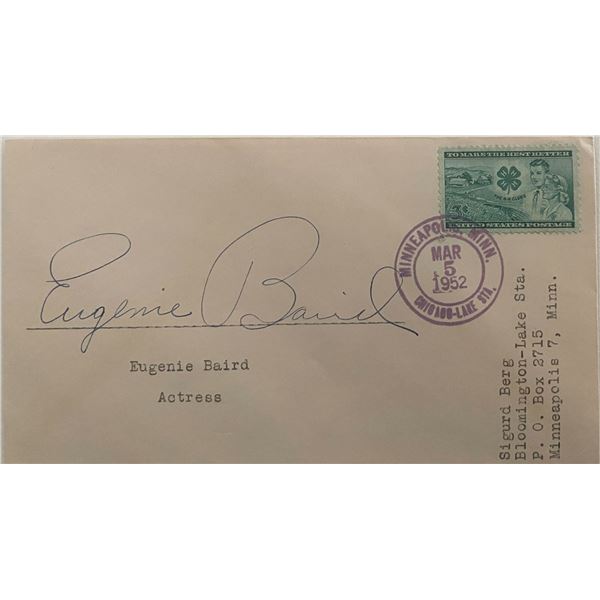 TO MAKE THE BEST BETTER
THE 4-H CLUBS
3¢
UNITED STATES POSTAGE
MINNEAPOLIS, MINN.
MAR
5
1952
CHICAGO-LAKE STA.
Eugenie Baird
Eugenie Baird
Actress
Sigurd Berg
Bloomington-Lake Sta.
P. O. Box 2715
Minneapolis 7, Minn.